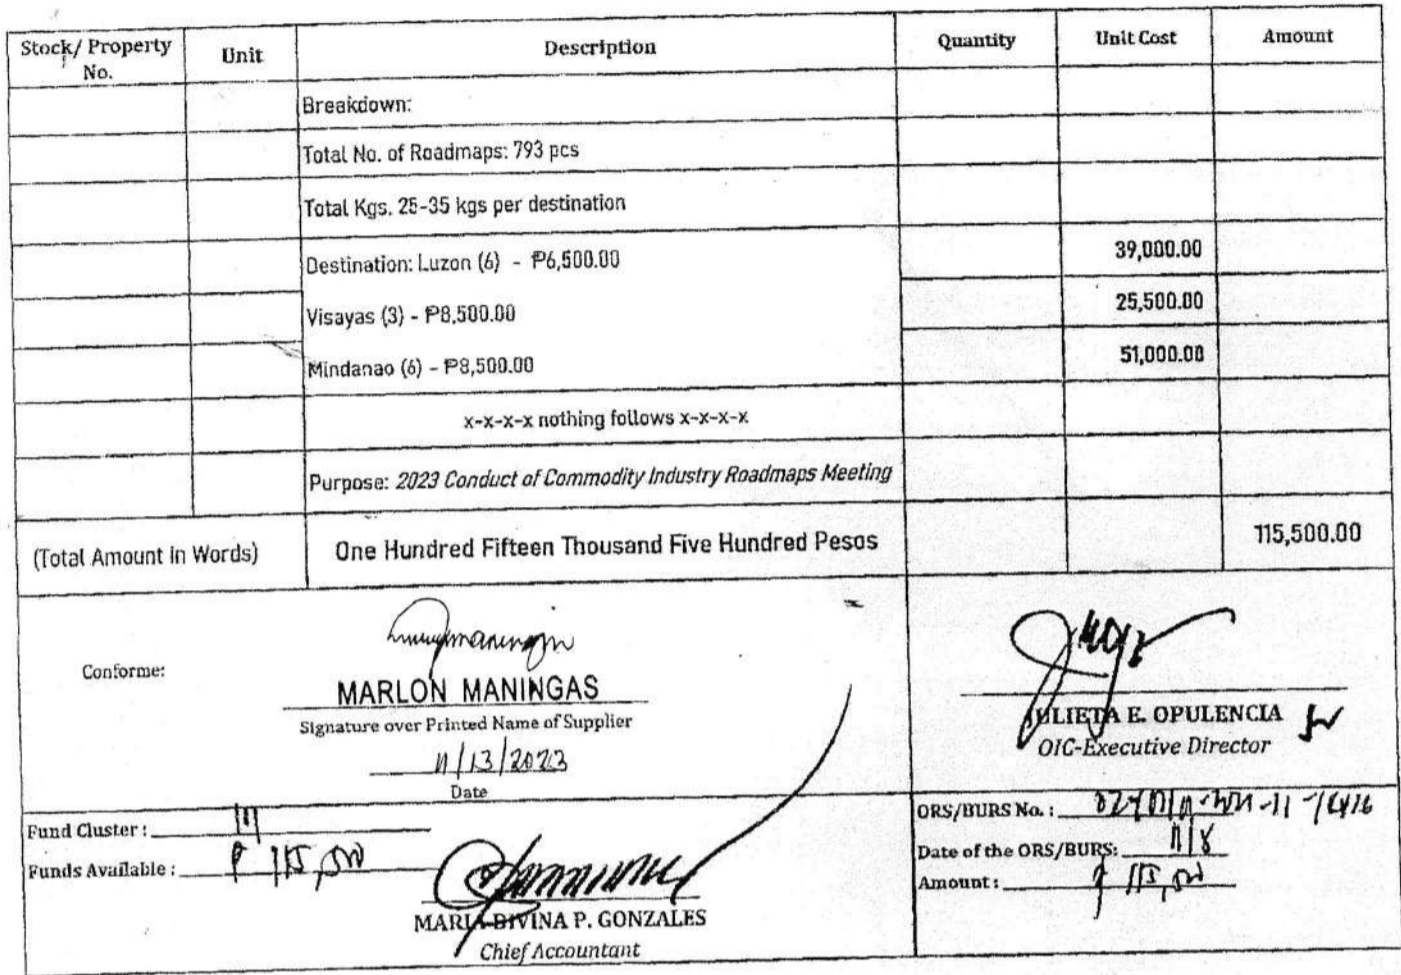 Stock/ Property No. Unit Description Quantity Unit Cost Amount
Breakdown:
Total No. of Roadmaps: 793 pcs
Total Kgs. 25-35 kgs per destination
Destination: Luzon (6) - ₱6,500.00 39,000.00
Visayas (3) - ₱8,500.00 25,500.00
Mindanao (6) - ₱8,500.00 51,000.00
x-x-x-x nothing follows x-x-x-x
Purpose: 2023 Conduct of Commodity Industry Roadmaps Meeting
(Total Amount in Words) One Hundred Fifteen Thousand Five Hundred Pesos 115,500.00
Conforme:
MARLON MANINGAS
Signature over Printed Name of Supplier
11/13/2023
Date
JULIETA E. OPULENCIA
OIC-Executive Director
Fund Cluster :
Funds Available : ₱ 115,500
MARIA DIVINA P. GONZALES
Chief Accountant
ORS/BURS No. :
Date of the ORS/BURS: 11/8
Amount : ₱ 115,500